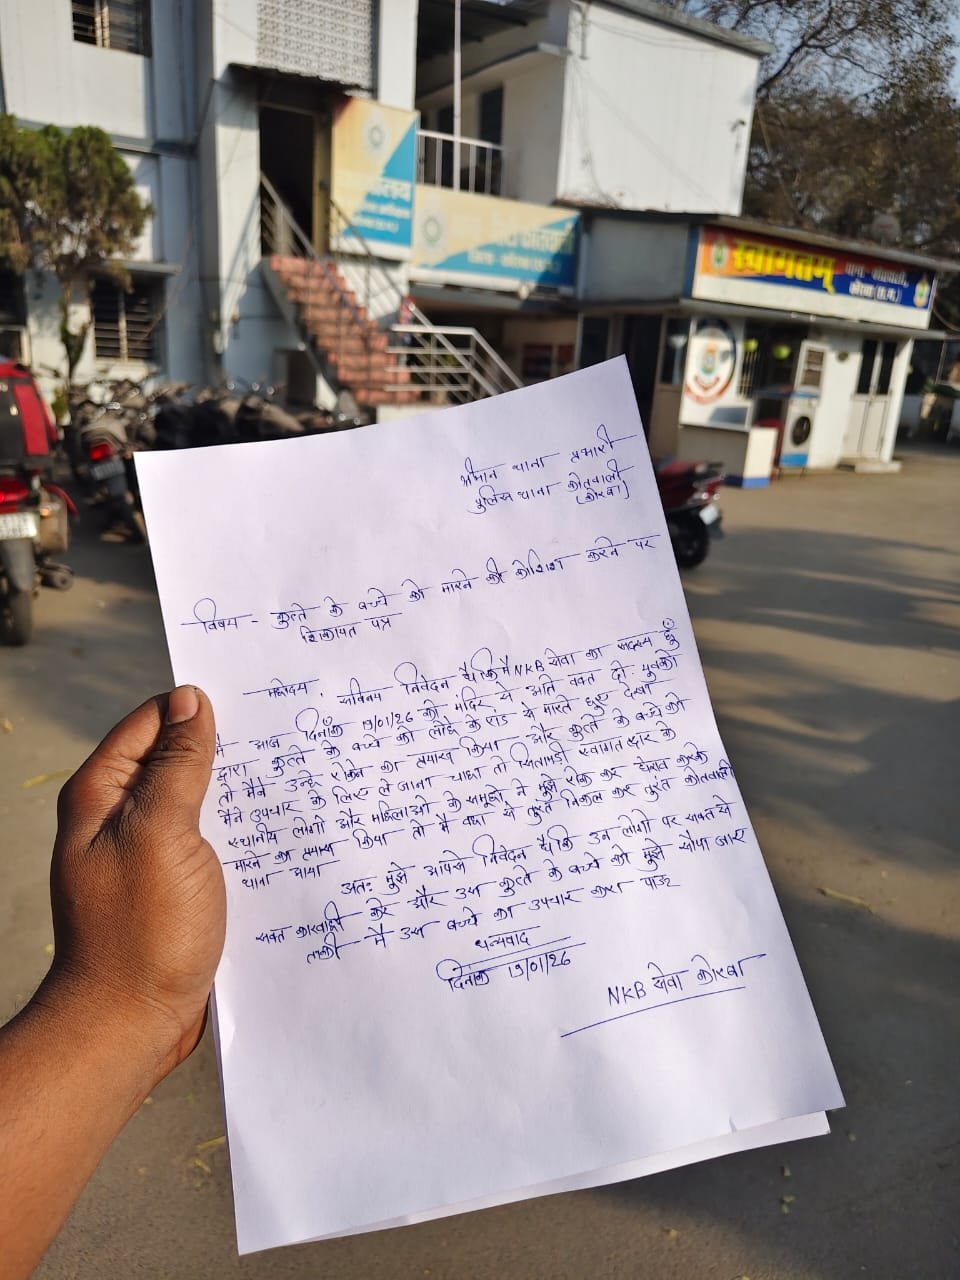 स्वागतम्
थाना कोतवाली,
कोरबा (छ.ग.)
श्रीमान थाना प्रभारी
पुलिस थाना कोतवाली
(कोरबा)
विषय - कुत्ते के बच्चे को मारने की कोशिश करने पर
शिकायत पत्र
महोदय, सविनय निवेदन है कि मैं NKB सेवा का सदस्य हूँ
मै आज दिनाँक 19/01/26 को मंदिर से आते वक्त दो युवको
द्वारा कुत्ते के बच्चे को लोहे के राड से मारते हुए देखा
तो मैने उन्हे रोकने का प्रयास किया और कुत्ते के बच्चे को
मैने उपचार के लिए ले जाना चाहा तो सितामढी स्वागत द्वार के
स्थानीय लोगो और महिलाओ के समूहो ने मुझे रोक कर घेराव करके
मारने का प्रयास किया तो मै वहा से तुरंत निकल कर तुरंत कोतवाली
थाना आया
अतः मुझे आपसे निवेदन है कि उन लोगो पर सक्त से
सक्त कारवाही करे और उस कुत्ते के बच्चे को मुझे सौपा जाए
ताकी मै उस बच्चे का उपचार करा पाऊ
धन्यवाद
दिनांक 19/01/26
NKB सेवा कोरबा